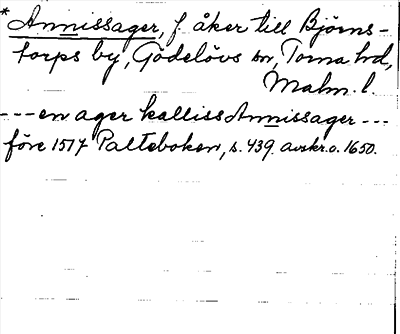 *Annissager, f. åker till Björns-
torps by, Gödelövs sn, Torna hd,
Malm. l.
---en ager kalliss Annissager---
före 1517 Palteboken, s. 439. avskr. o. 1650.